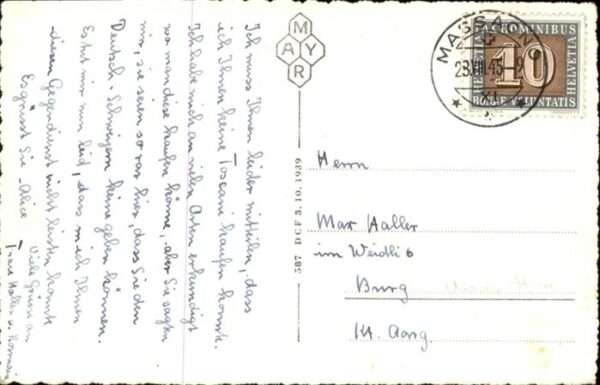 Ich muss Ihnen leider mitteilen, dass
ich Ihnen keine Toscani kaufen konnte.
Ich habe mich an vielen Orten erkundigt
wo man diese kaufen könne, aber Sie sagten
mir, sie seien so rar hier, dass Sie den
Deutsch-Schweizern keine geben können.
Es tut mir nun leid, dass ich Ihnen
diesen Gegendienst nicht leisten konnte
Es grüsst Sie Alice
Viele Grüsse an
Frau Haller u. Rosmarie
MAYR
587 DCF 9. 10. 3. 1939
MASSAGNO
23.VIII.45
XI
PAX HOMINIBUS
HELVETIA
10
HELVETIA
BONAE VOLUNTATIS
Herrn
Max Haller
im Weidli 6
Burg
Kt. Aarg.